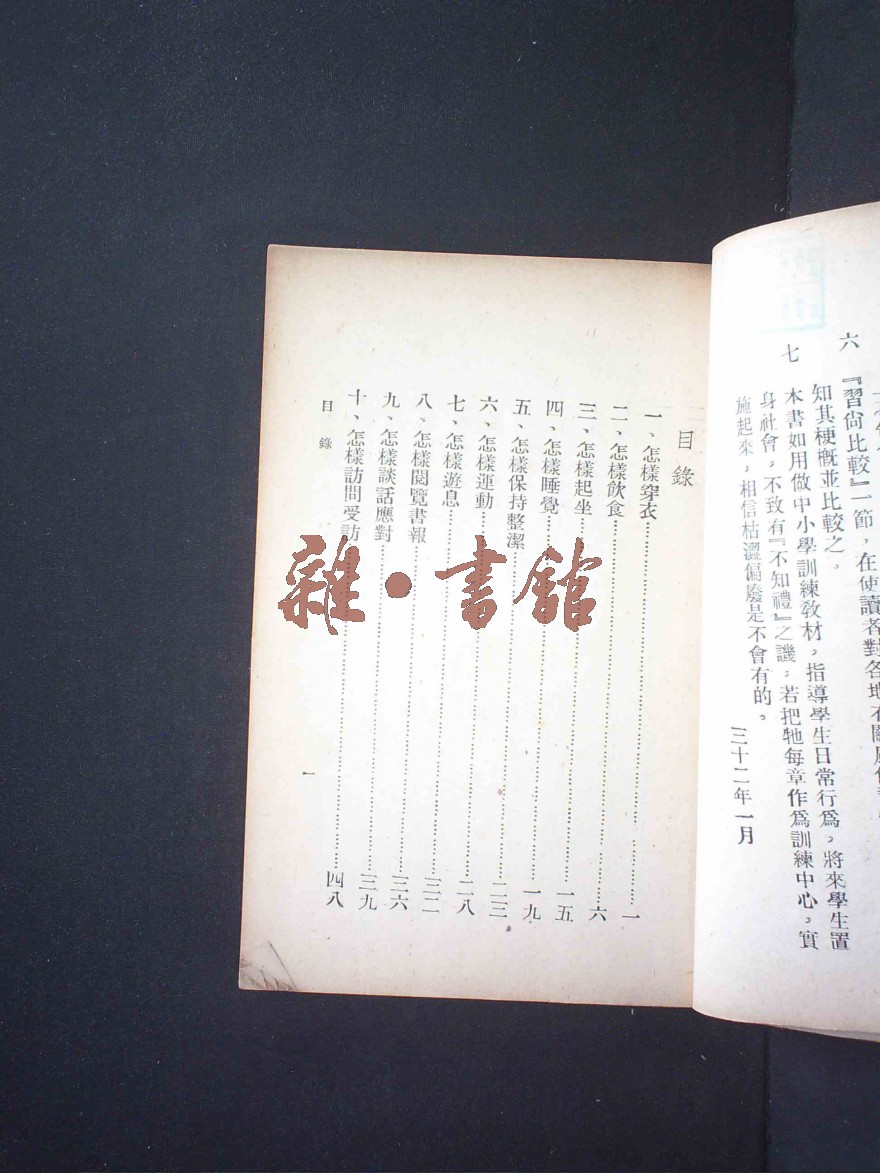 六 『習尙比較』一節，在使讀者對各地
知其梗概並比較之。
七 本書如用做中小學訓練敎材，指導學生日常行爲，將來學生置
身社會，不致有『不知禮』之譏，若把牠每章作爲訓練中心，實
施起來，相信枯澀偏廢是不會有的。
三十二年一月
目錄
一、怎樣穿衣……一
二、怎樣飲食……六
三、怎樣起坐……一五
四、怎樣睡覺……一九
五、怎樣保持整潔……二三
六、怎樣運動……二八
七、怎樣遊息……三二
八、怎樣閱覽書報……三六
九、怎樣談話應對……三九
十、怎樣訪問受訪……四八
目錄
一
雜·書館